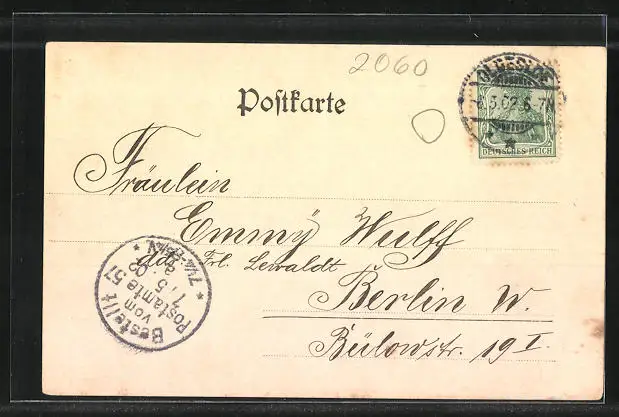 2060
Postkarte
6.5.02.6-7N
DEUTSCHES REICH
Fräulein
Emmy Wulff
adr. Frl. Lewaldt
Berlin W.
Bülowstr. 19 I.
Bestellt
vom
Postamte 57
7.5.02